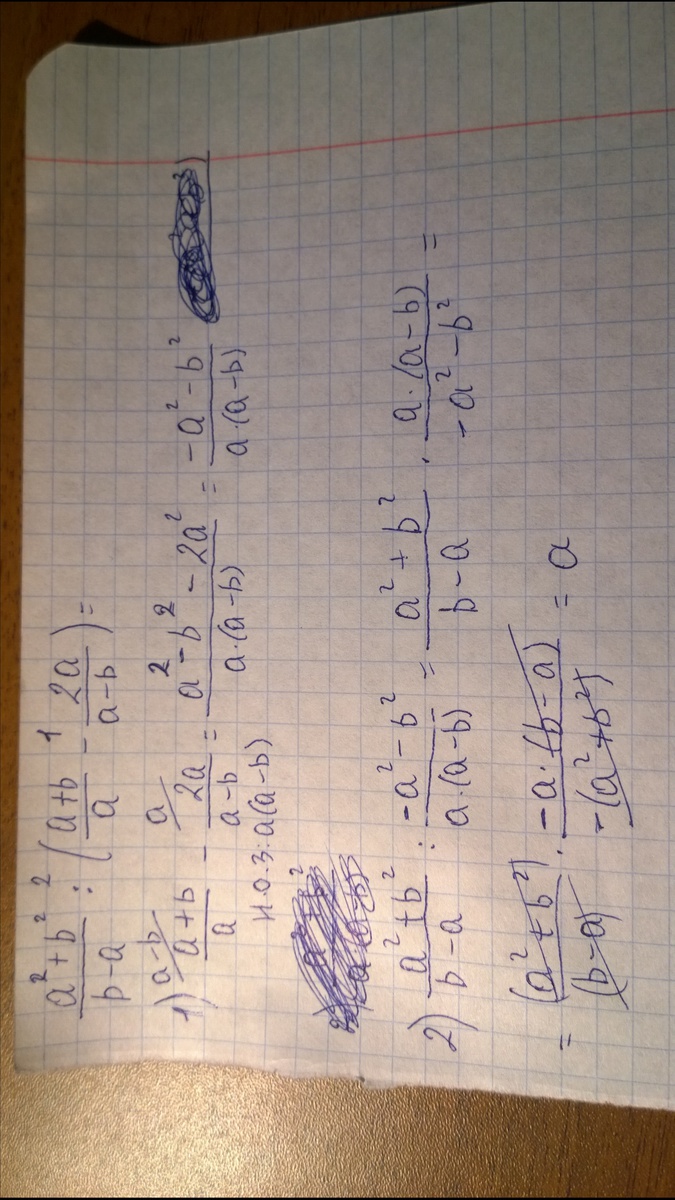 (a² + b²)/(b − a) :² ((a + b)/a −¹ 2a/(a − b)) =
1) (a + b)/a ^(a−b) − 2a/(a − b) ^a = (a² − b² − 2a²)/(a·(a − b)) = (−a² − b²)/(a·(a − b))
н.о.з: a(a − b)
2) (a² + b²)/(b − a) : (−a² − b²)/(a·(a − b)) = (a² + b²)/(b − a) · (a·(a − b))/(−a² − b²) =
= (a² + b²)/(b − a) · (−a·(b − a))/(−(a² + b²)) = a